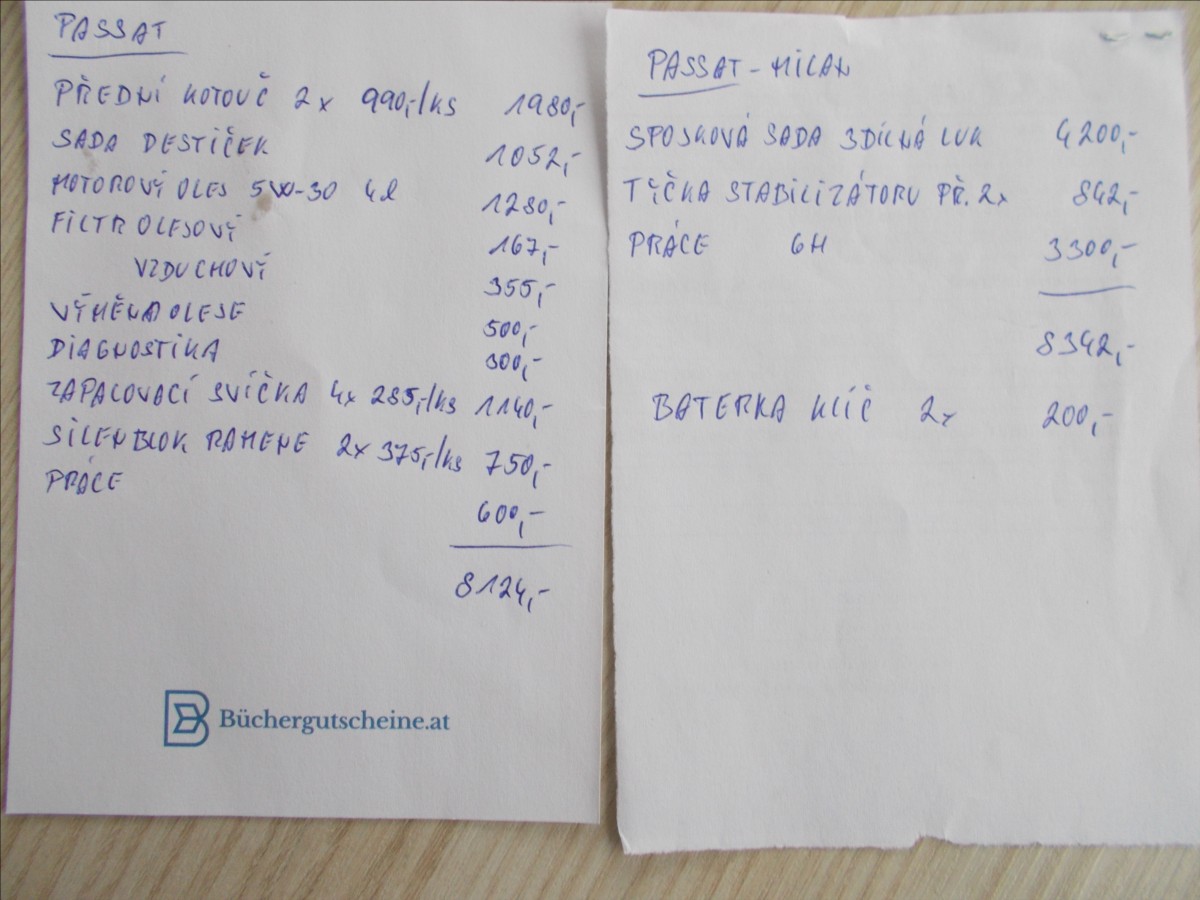 PASSAT
PŘEDNÍ KOTOUČ 2x 990,-/ks 1980,-
SADA DESTIČEK 1052,-
MOTOROVÝ OLEJ 5W-30 4l 1280,-
FILTR OLEJOVÝ 167,-
VZDUCHOVÝ 355,-
VÝMĚNA OLEJE 500,-
DIAGNOSTIKA 300,-
ZAPALOVACÍ SVÍČKA 4x 285,-/ks 1140,-
SILENBLOK RAMENE 2x 375,-/ks 750,-
PRÁCE 600,-
8124,-
Büchergutscheine.at
PASSAT - MILAN
SPOJKOVÁ SADA 3DÍLNÁ LUK 4200,-
TYČKA STABILIZÁTORU PŘ. 2x 842,-
PRÁCE 6H 3300,-
8342,-
BATERKA KLÍČ 2x 200,-